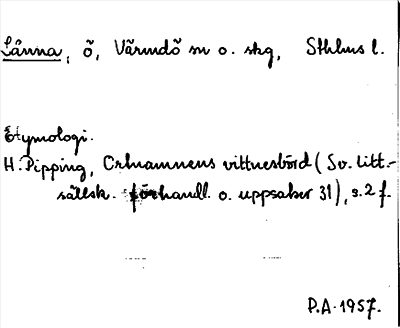 Länna, ö, Värmdö sn o. skg, Sthlms l.
Etymologi.
H. Pipping, Ortnamnens vittnesbörd (Sv. litt.-
sällsk. förhandl. o. uppsatser 31), s. 2 f.
P.A. 1957.